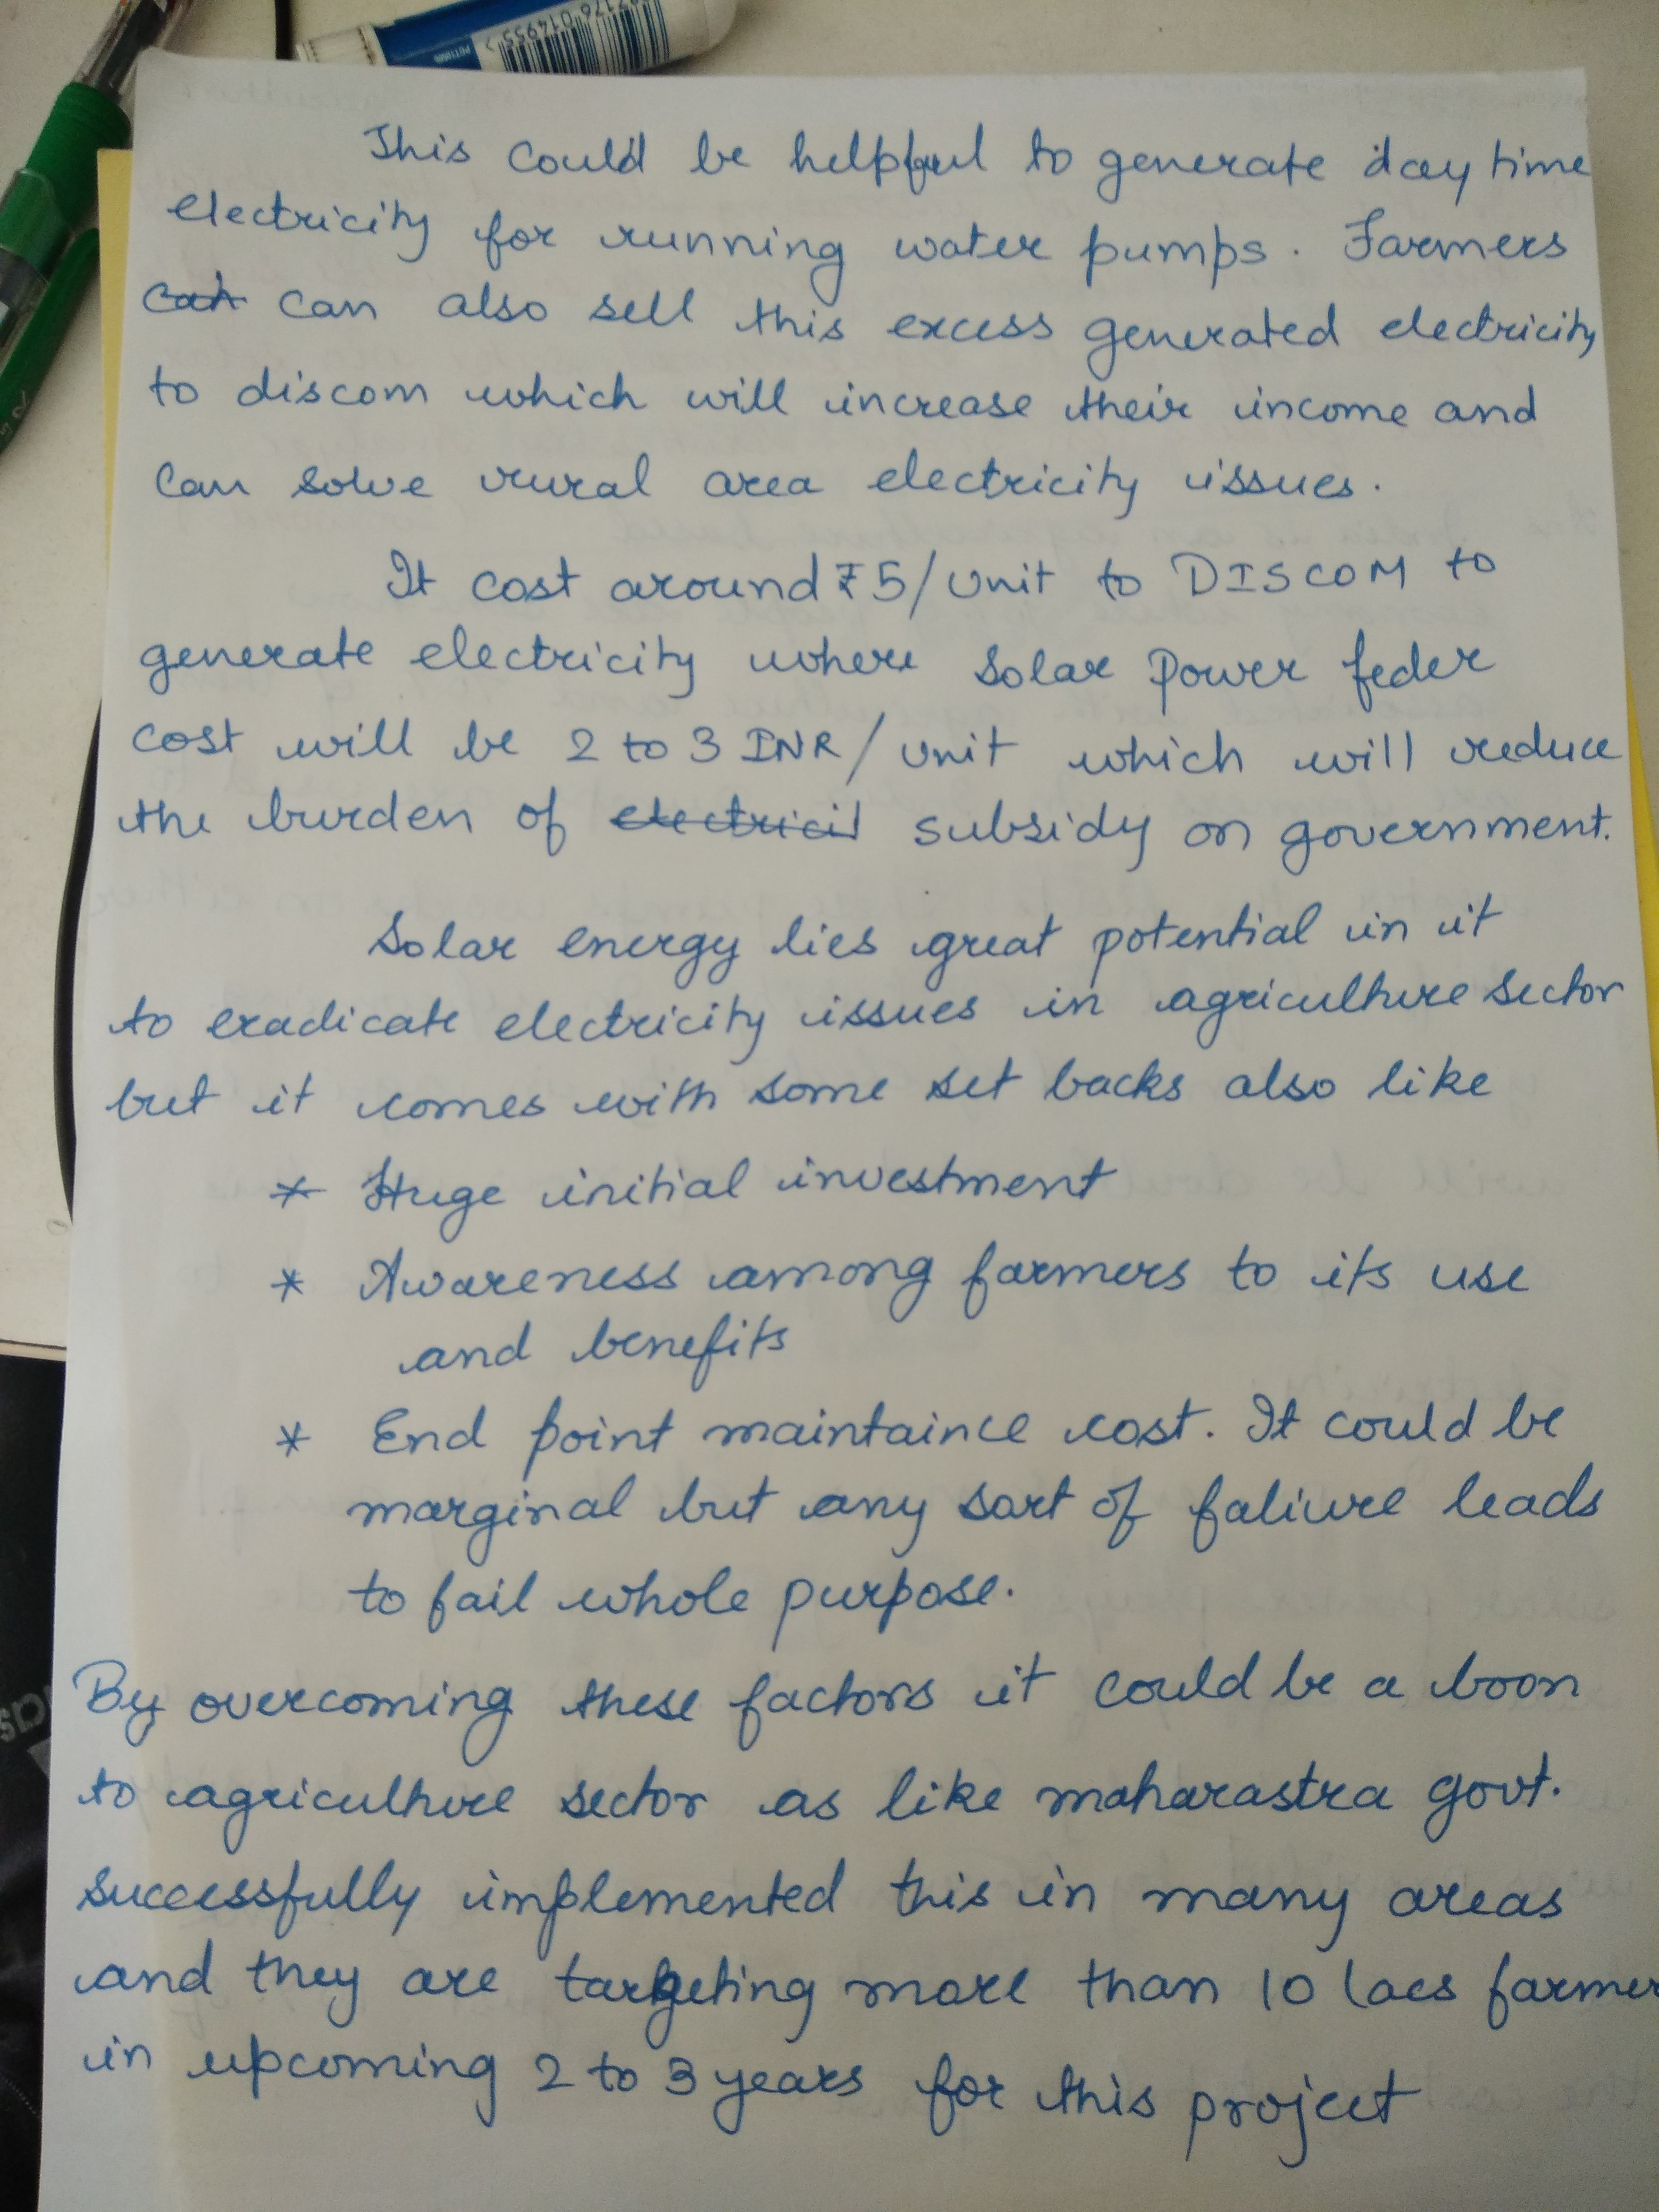 This could be helpful to generate day time
electricity for running water pumps. Farmers
can can also sell this excess generated electricity
to discom which will increase their income and
can solve rural area electricity issues.
It cost around ₹5/unit to DISCOM to
generate electricity where solar power feder
cost will be 2 to 3 INR/unit which will reduce
the burden of electricit subsidy on government.
Solar energy lies great potential in it
to eradicate electricity issues in agriculture sector
but it comes with some set backs also like
* Huge initial investment
* Awareness among farmers to its use
and benefits
* End point maintaince cost. It could be
marginal but any sort of faliure leads
to fail whole purpose.
By overcoming these factors it could be a boon
to agriculture sector as like maharastra govt.
successfully implemented this in many areas
and they are targeting more than 10 lacs farmer
in upcoming 2 to 3 years for this project